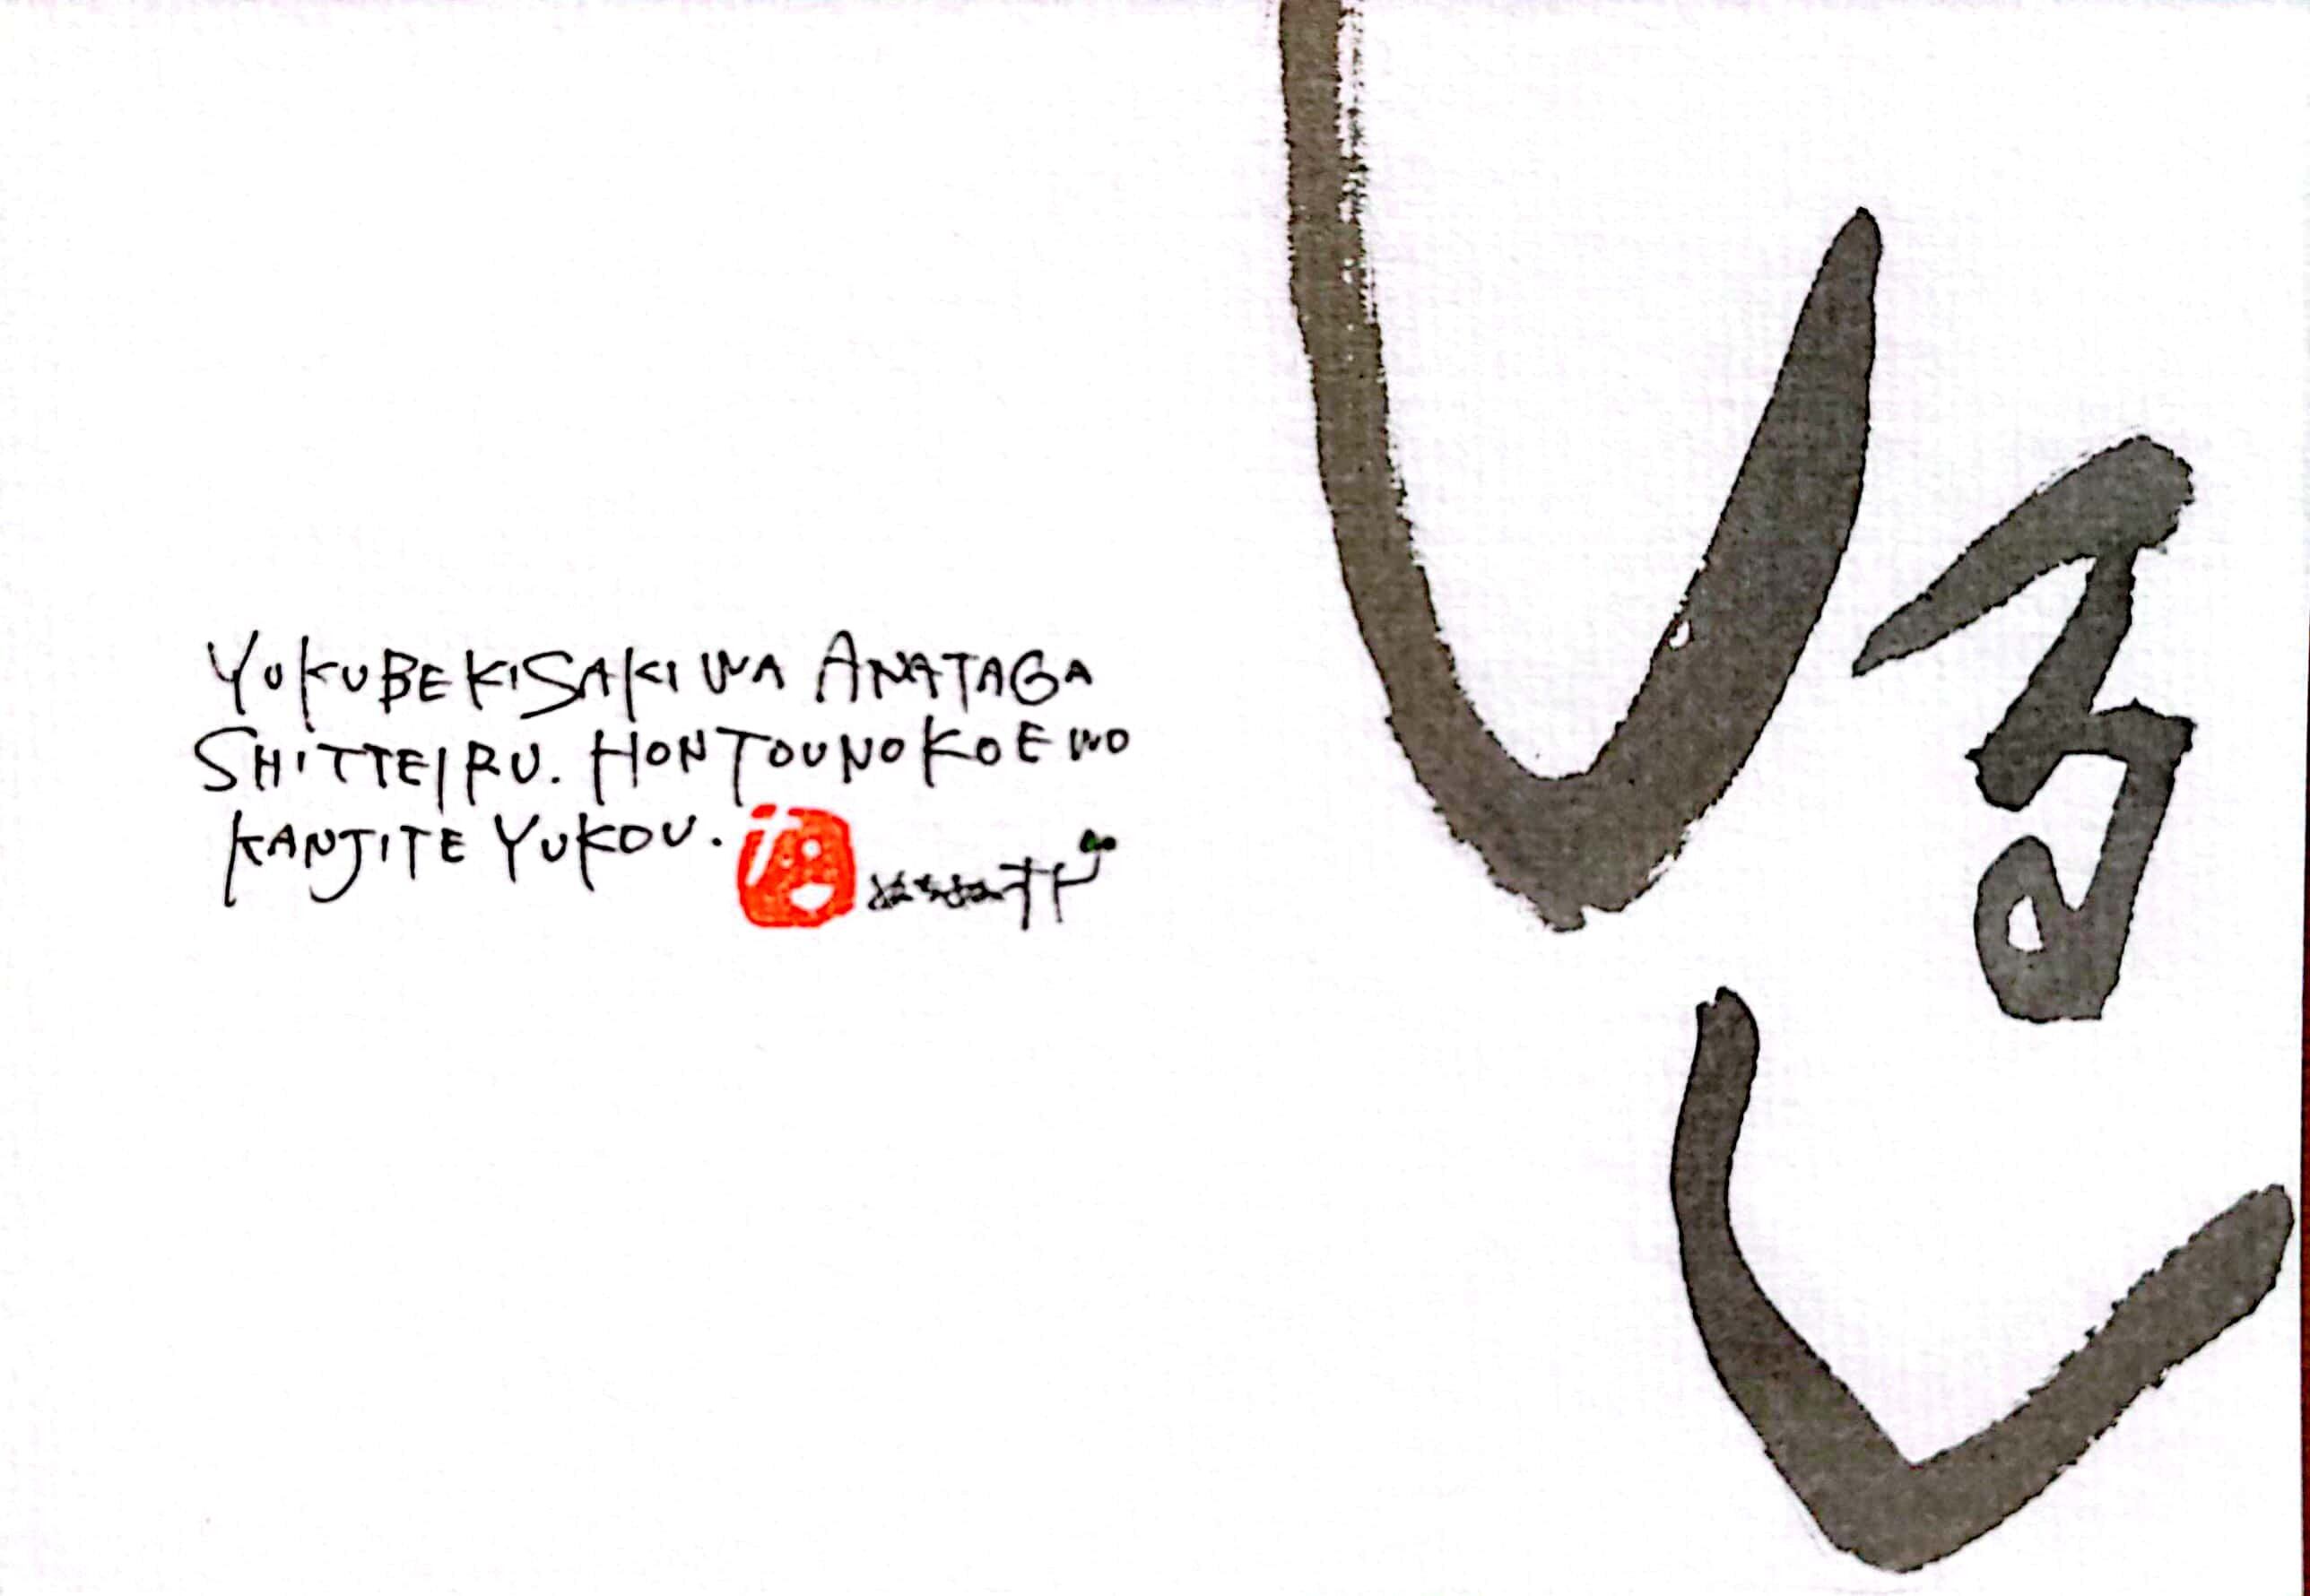 YUKUBEKISAKI WA ANATAGA
SHITTEIRU. HONTOUNOKOE WO
KANJITE YUKOU.
しるし